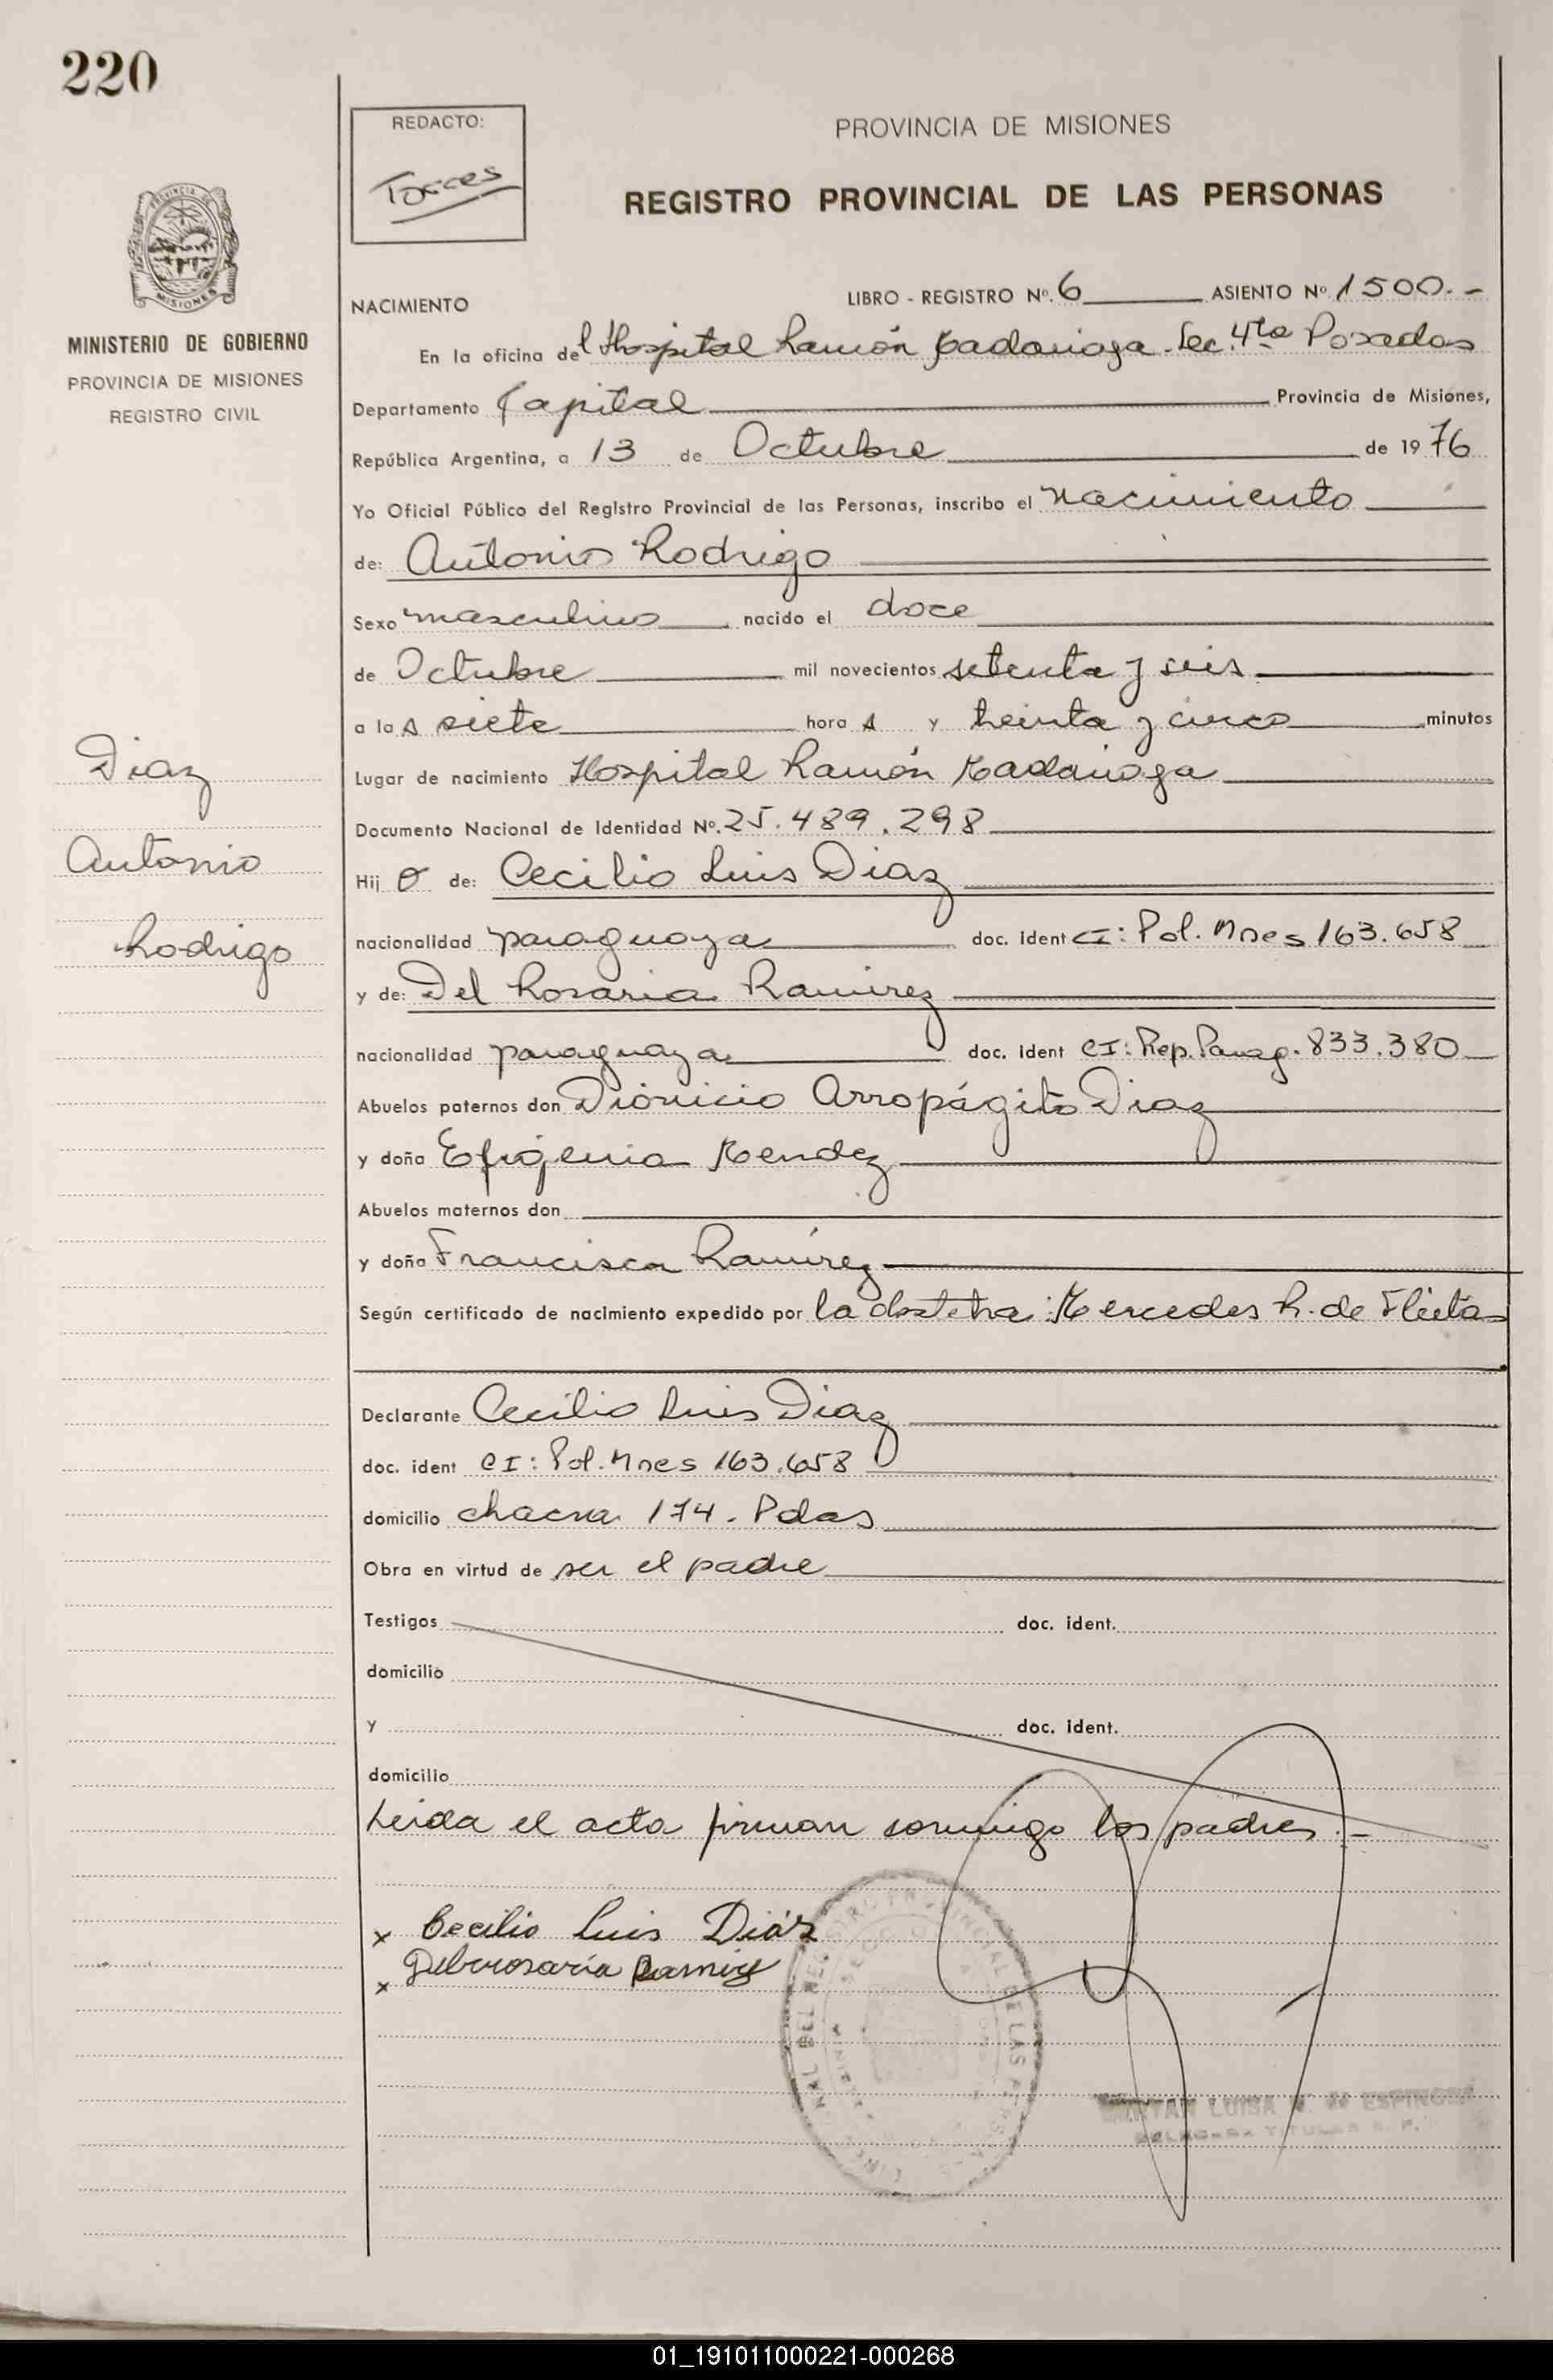 220
REDACTO:
Torres
PROVINCIA DE MISIONES
REGISTRO PROVINCIAL DE LAS PERSONAS
PROVINCIA DE
MISIONES
MINISTERIO DE GOBIERNO
PROVINCIA DE MISIONES
REGISTRO CIVIL
NACIMIENTO LIBRO - REGISTRO Nº. 6 ASIENTO Nº 1500.-
En la oficina del Hospital Ramón Madariaga - Sec. 4ta Posadas
Departamento Capital Provincia de Misiones,
República Argentina, a 13 de Octubre de 1976
Yo Oficial Público del Registro Provincial de las Personas, inscribo el nacimiento
de: Antonio Rodrigo
Sexo masculino nacido el doce
de Octubre mil novecientos setenta y seis
a las siete horas y treinta y cinco minutos
Lugar de nacimiento Hospital Ramón Madariaga
Documento Nacional de Identidad Nº. 25.489.298
Hijo de: Cecilio Luis Diaz
nacionalidad paraguaya doc. ident CI: Pol. Mnes 163.658
y de: Del Rosaria Ramirez
nacionalidad paraguaya doc. ident CI: Rep. Parag. 833.380
Abuelos paternos don Dionicio Arropágito Diaz
y doña Efigenia Mendez
Abuelos maternos don
y doña Francisca Ramírez
Según certificado de nacimiento expedido por la obstetra: Mercedes R. de Fleitas
Declarante Cecilio Luis Diaz
doc. ident CI: Pol. Mnes 163.658
domicilio chacra 174. Pdas
Obra en virtud de ser el padre
Testigos doc. ident.
domicilio
y doc. ident.
domicilio
Leida el acta firman conmigo los padres.-
x Cecilio Luis Diáz
x Delrrosaria Ramirez
Diaz
Antonio
Rodrigo
LUISA de ESPINOSA
TITULAR
01_191011000221-000268